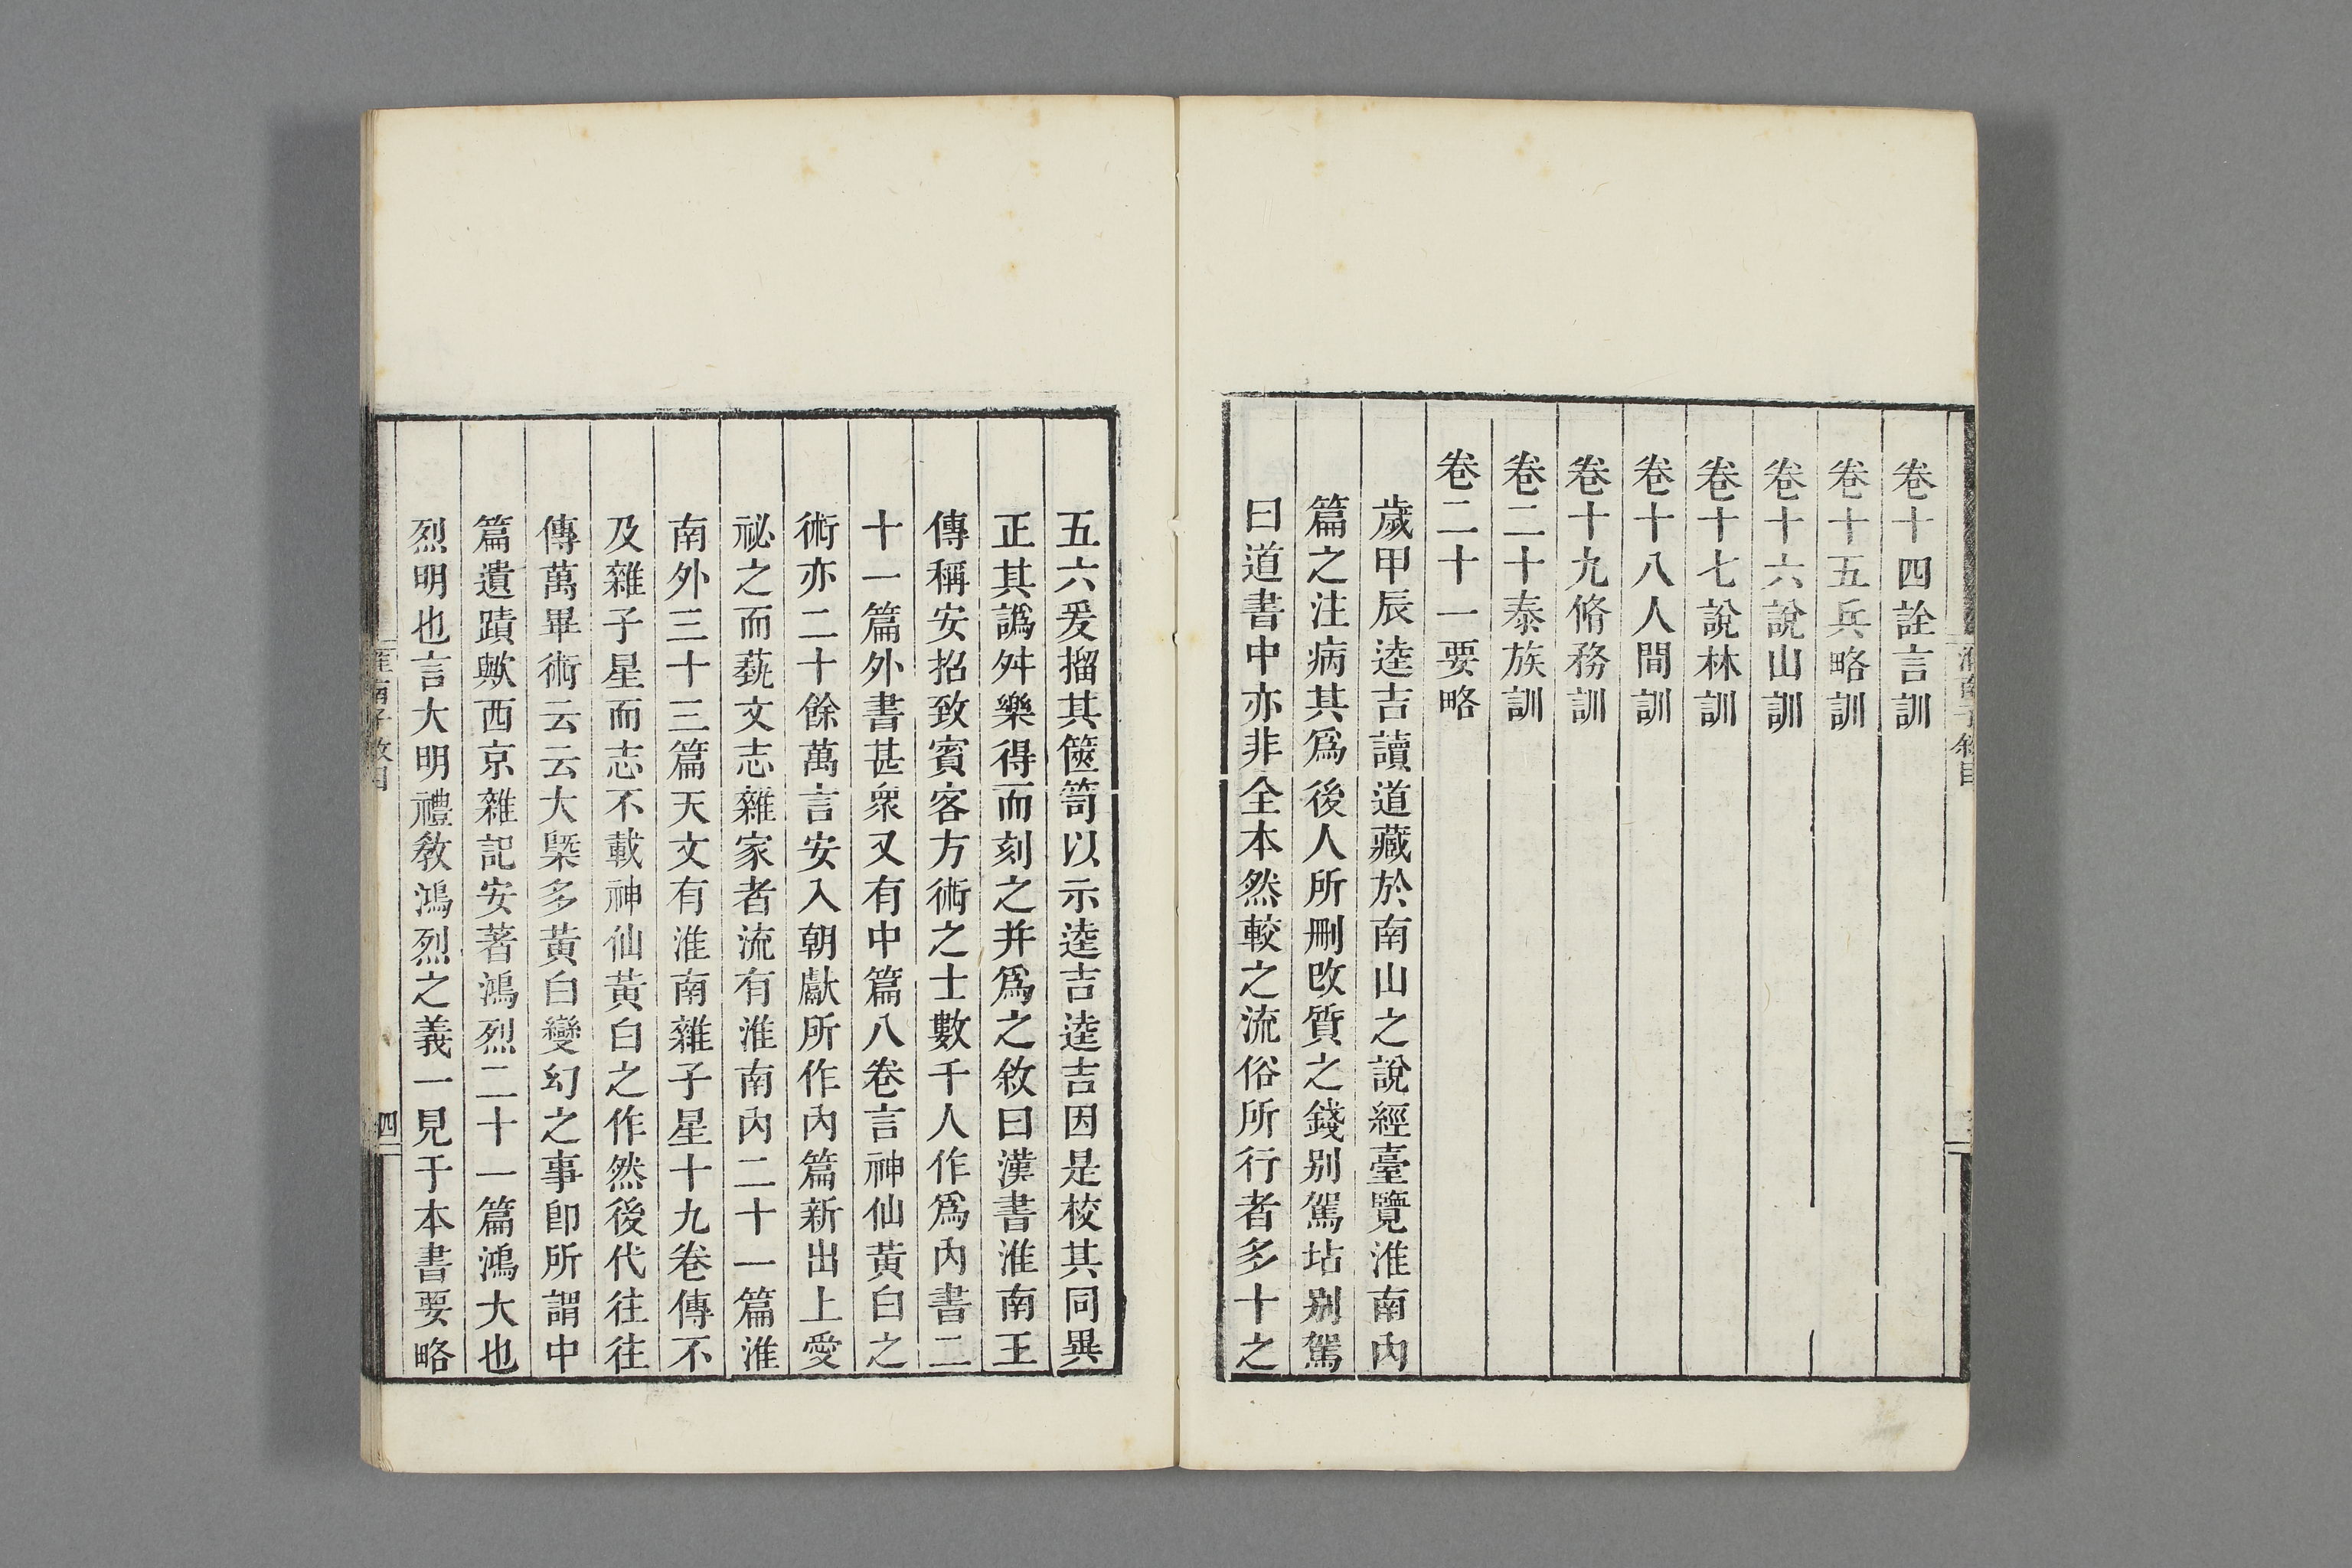 卷十四詮言訓
卷十五兵略訓
卷十六說山訓
卷十七說林訓
卷十八人間訓
卷十九脩務訓
卷二十泰族訓
卷二十一要略
歲甲辰逵吉讀道藏於南山之說經臺覽淮南內
篇之注病其爲後人所刪改質之錢別駕坫別駕
曰道書中亦非全本然較之流俗所行者多十之
五六爰搐其篋笥以示逵吉逵吉因是校其同異
正其譌舛樂得而刻之幷爲之敘曰漢書淮南王
傳稱安招致賓客方術之士數千人作爲內書二
十一篇外書甚衆又有中篇八卷言神仙黃白之
術亦二十餘萬言安入朝獻所作內篇新出上愛
祕之而蓺文志雜家者流有淮南內二十一篇淮
南外三十三篇天文有淮南雜子星十九卷傳不
及雜子星而志不載神仙黃白之作然後代往往
傳萬畢術云云大槩多黃白變幻之事卽所謂中
篇遺蹟歟西京雜記安著鴻烈二十一篇鴻大也
烈明也言大明禮敎鴻烈之義一見于本書要略
淮南子敘目
四